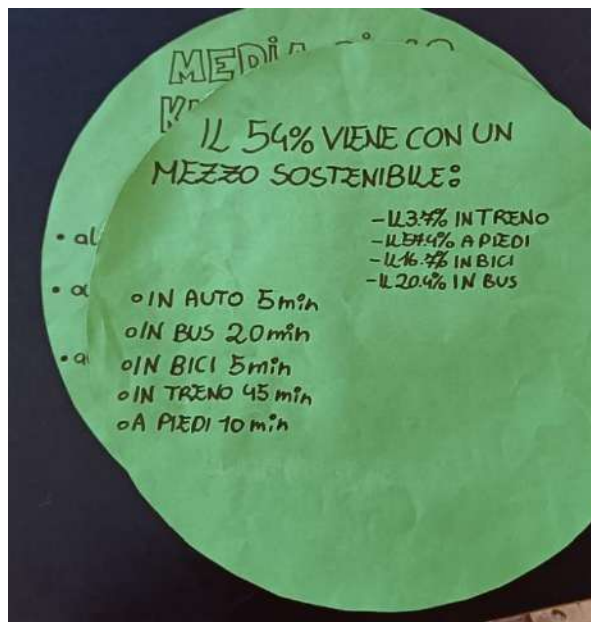 MEDIA
IL 54% VIENE CON UN
MEZZO SOSTENIBILE:
-IL 3.7% IN TRENO
-IL 57.4% A PIEDI
-IL 16.7% IN BICI
-IL 20.4% IN BUS
• al
• a
• a
○ IN AUTO 5 min
○ IN BUS 20 min
○ IN BICI 5 min
○ IN TRENO 45 min
○ A PIEDI 10 min